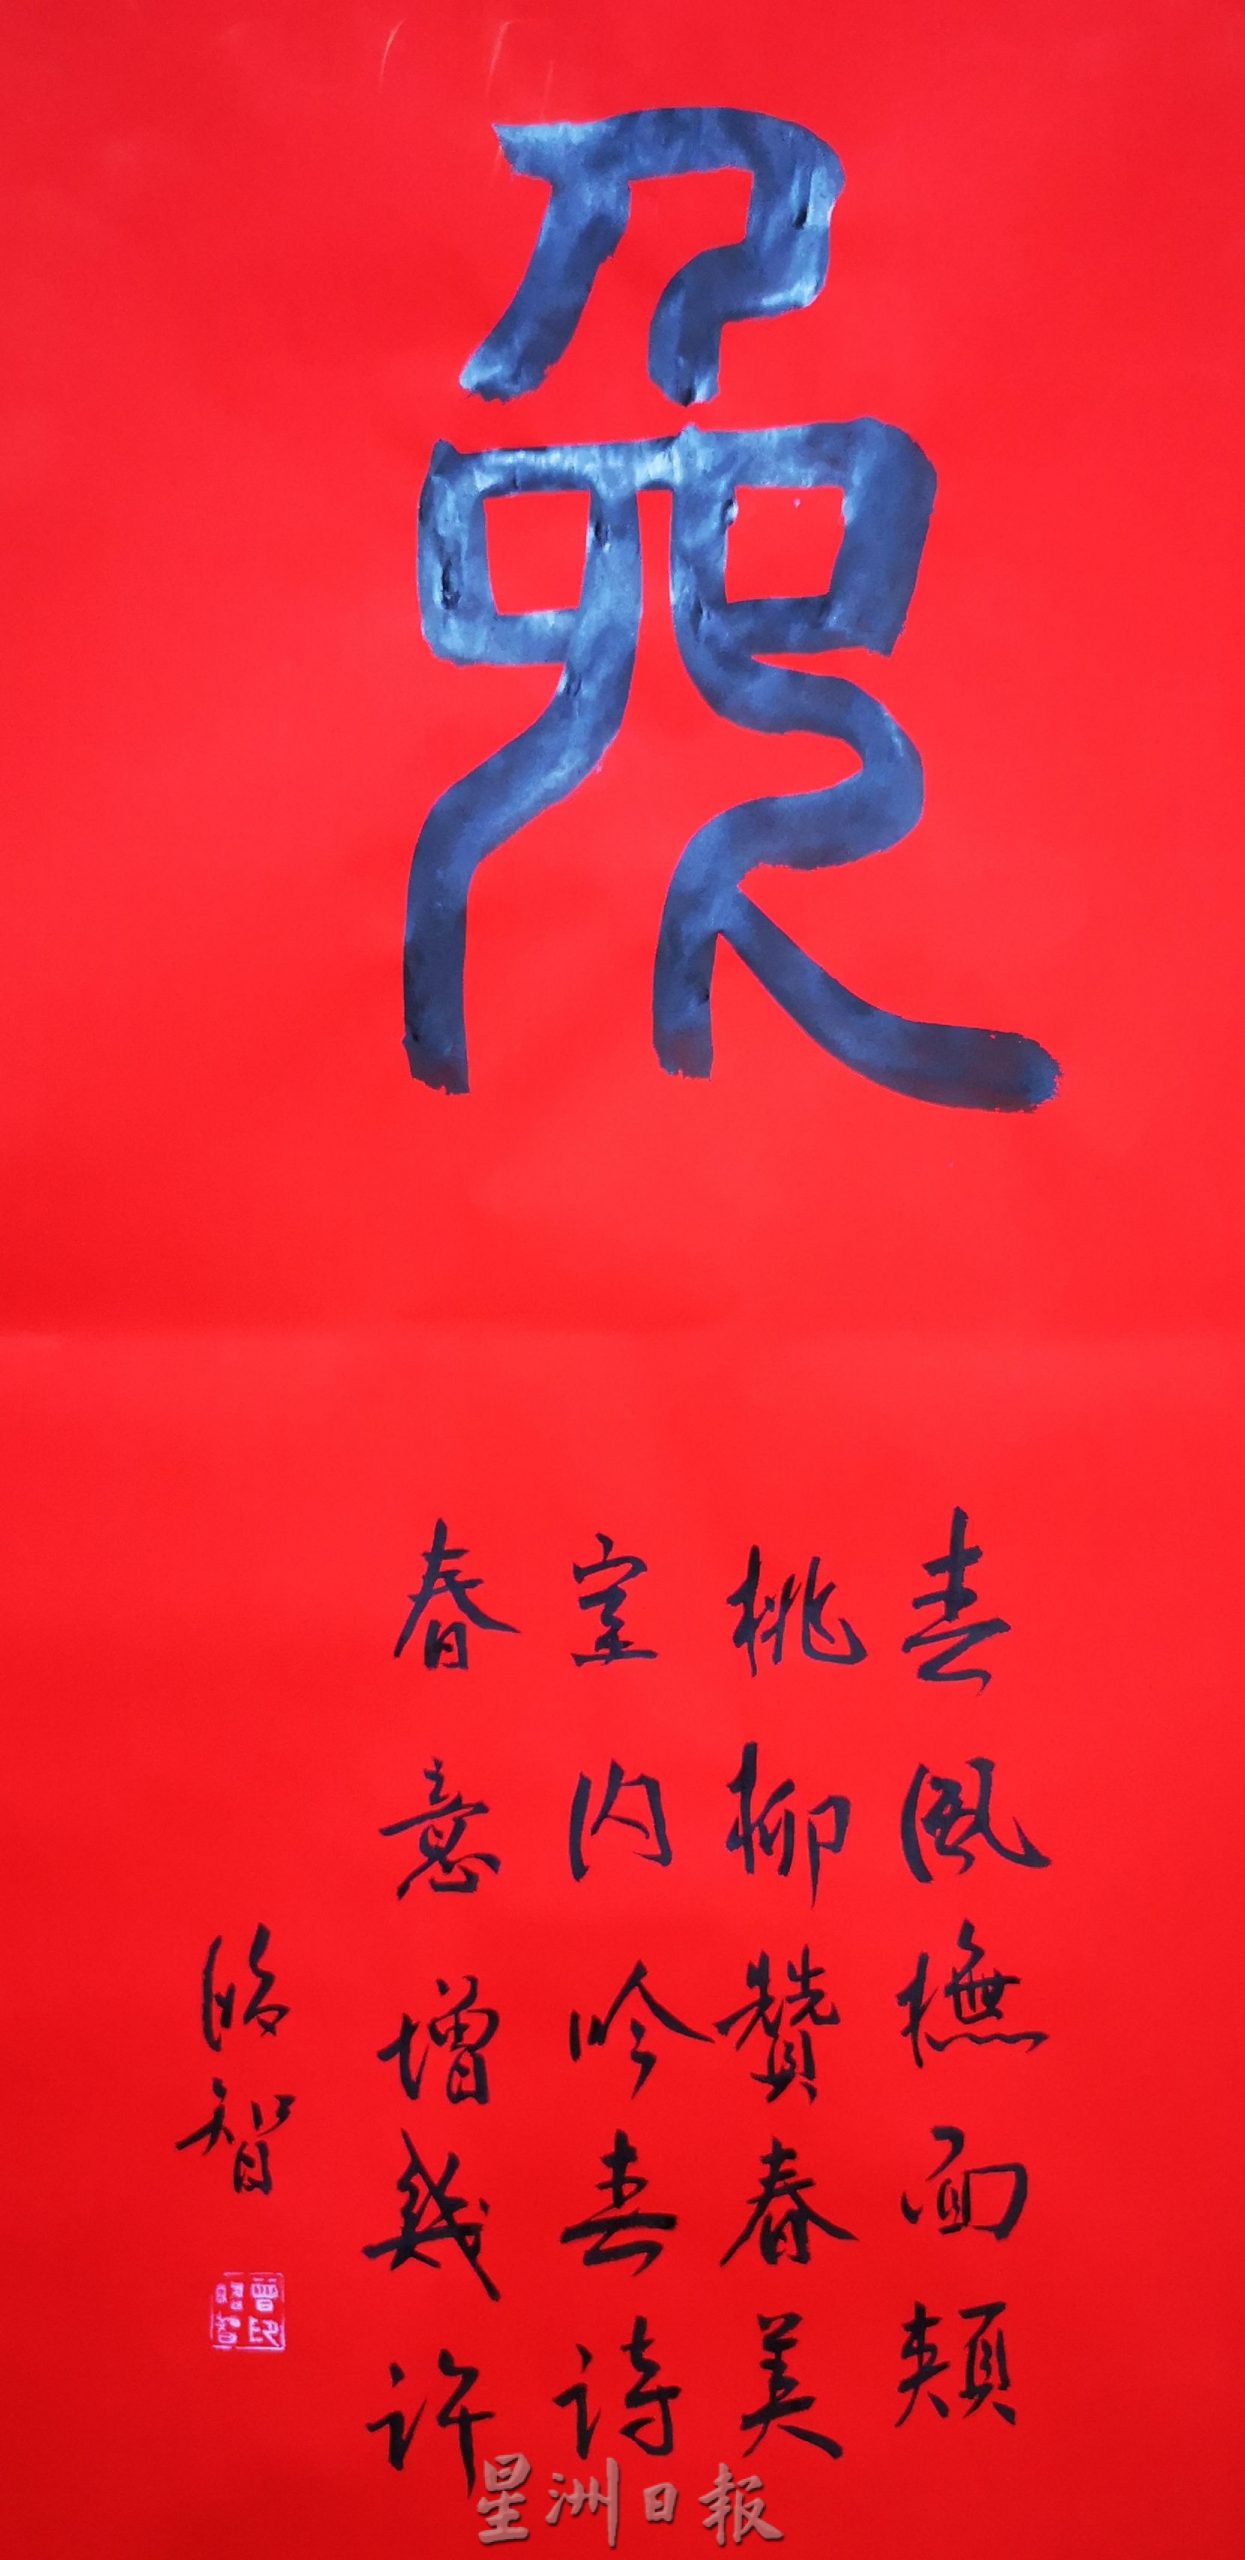 兔
春風撫面頰
桃柳贊春美
室内吟春詩
春意增幾許
智
星洲日報